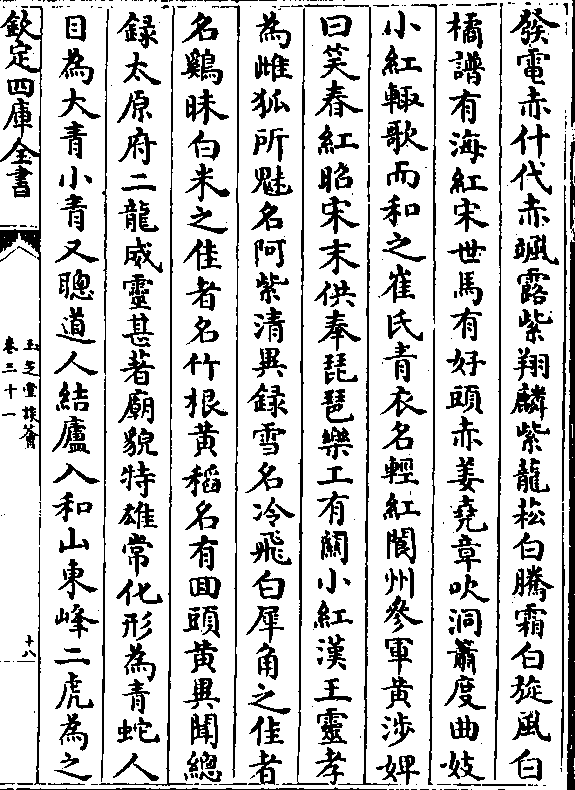 發電赤什代赤颯露紫翔麟紫龍菘白騰霜白旋風白
橘譜有海紅宋世馬有好頭赤姜堯章吹洞簫度曲妓
小紅輙歌而和之崔氏青衣名輕紅閬州參軍黄涉婢
曰笑春紅昭宋末供奉琵琶樂工有關小紅漢王靈孝
為雌狐所魅名阿紫清異録雪名冷飛白犀角之佳者
名鷄昧白米之佳者名竹根黄稻名有囬頭黄異聞總
録太原府二龍威靈甚著廟貌特雄常化形為青蛇人
目為大青小青又聰道人結廬入和山東峰二虎為之
欽定四庫全書
玉芝堂談薈
卷三十一
十八